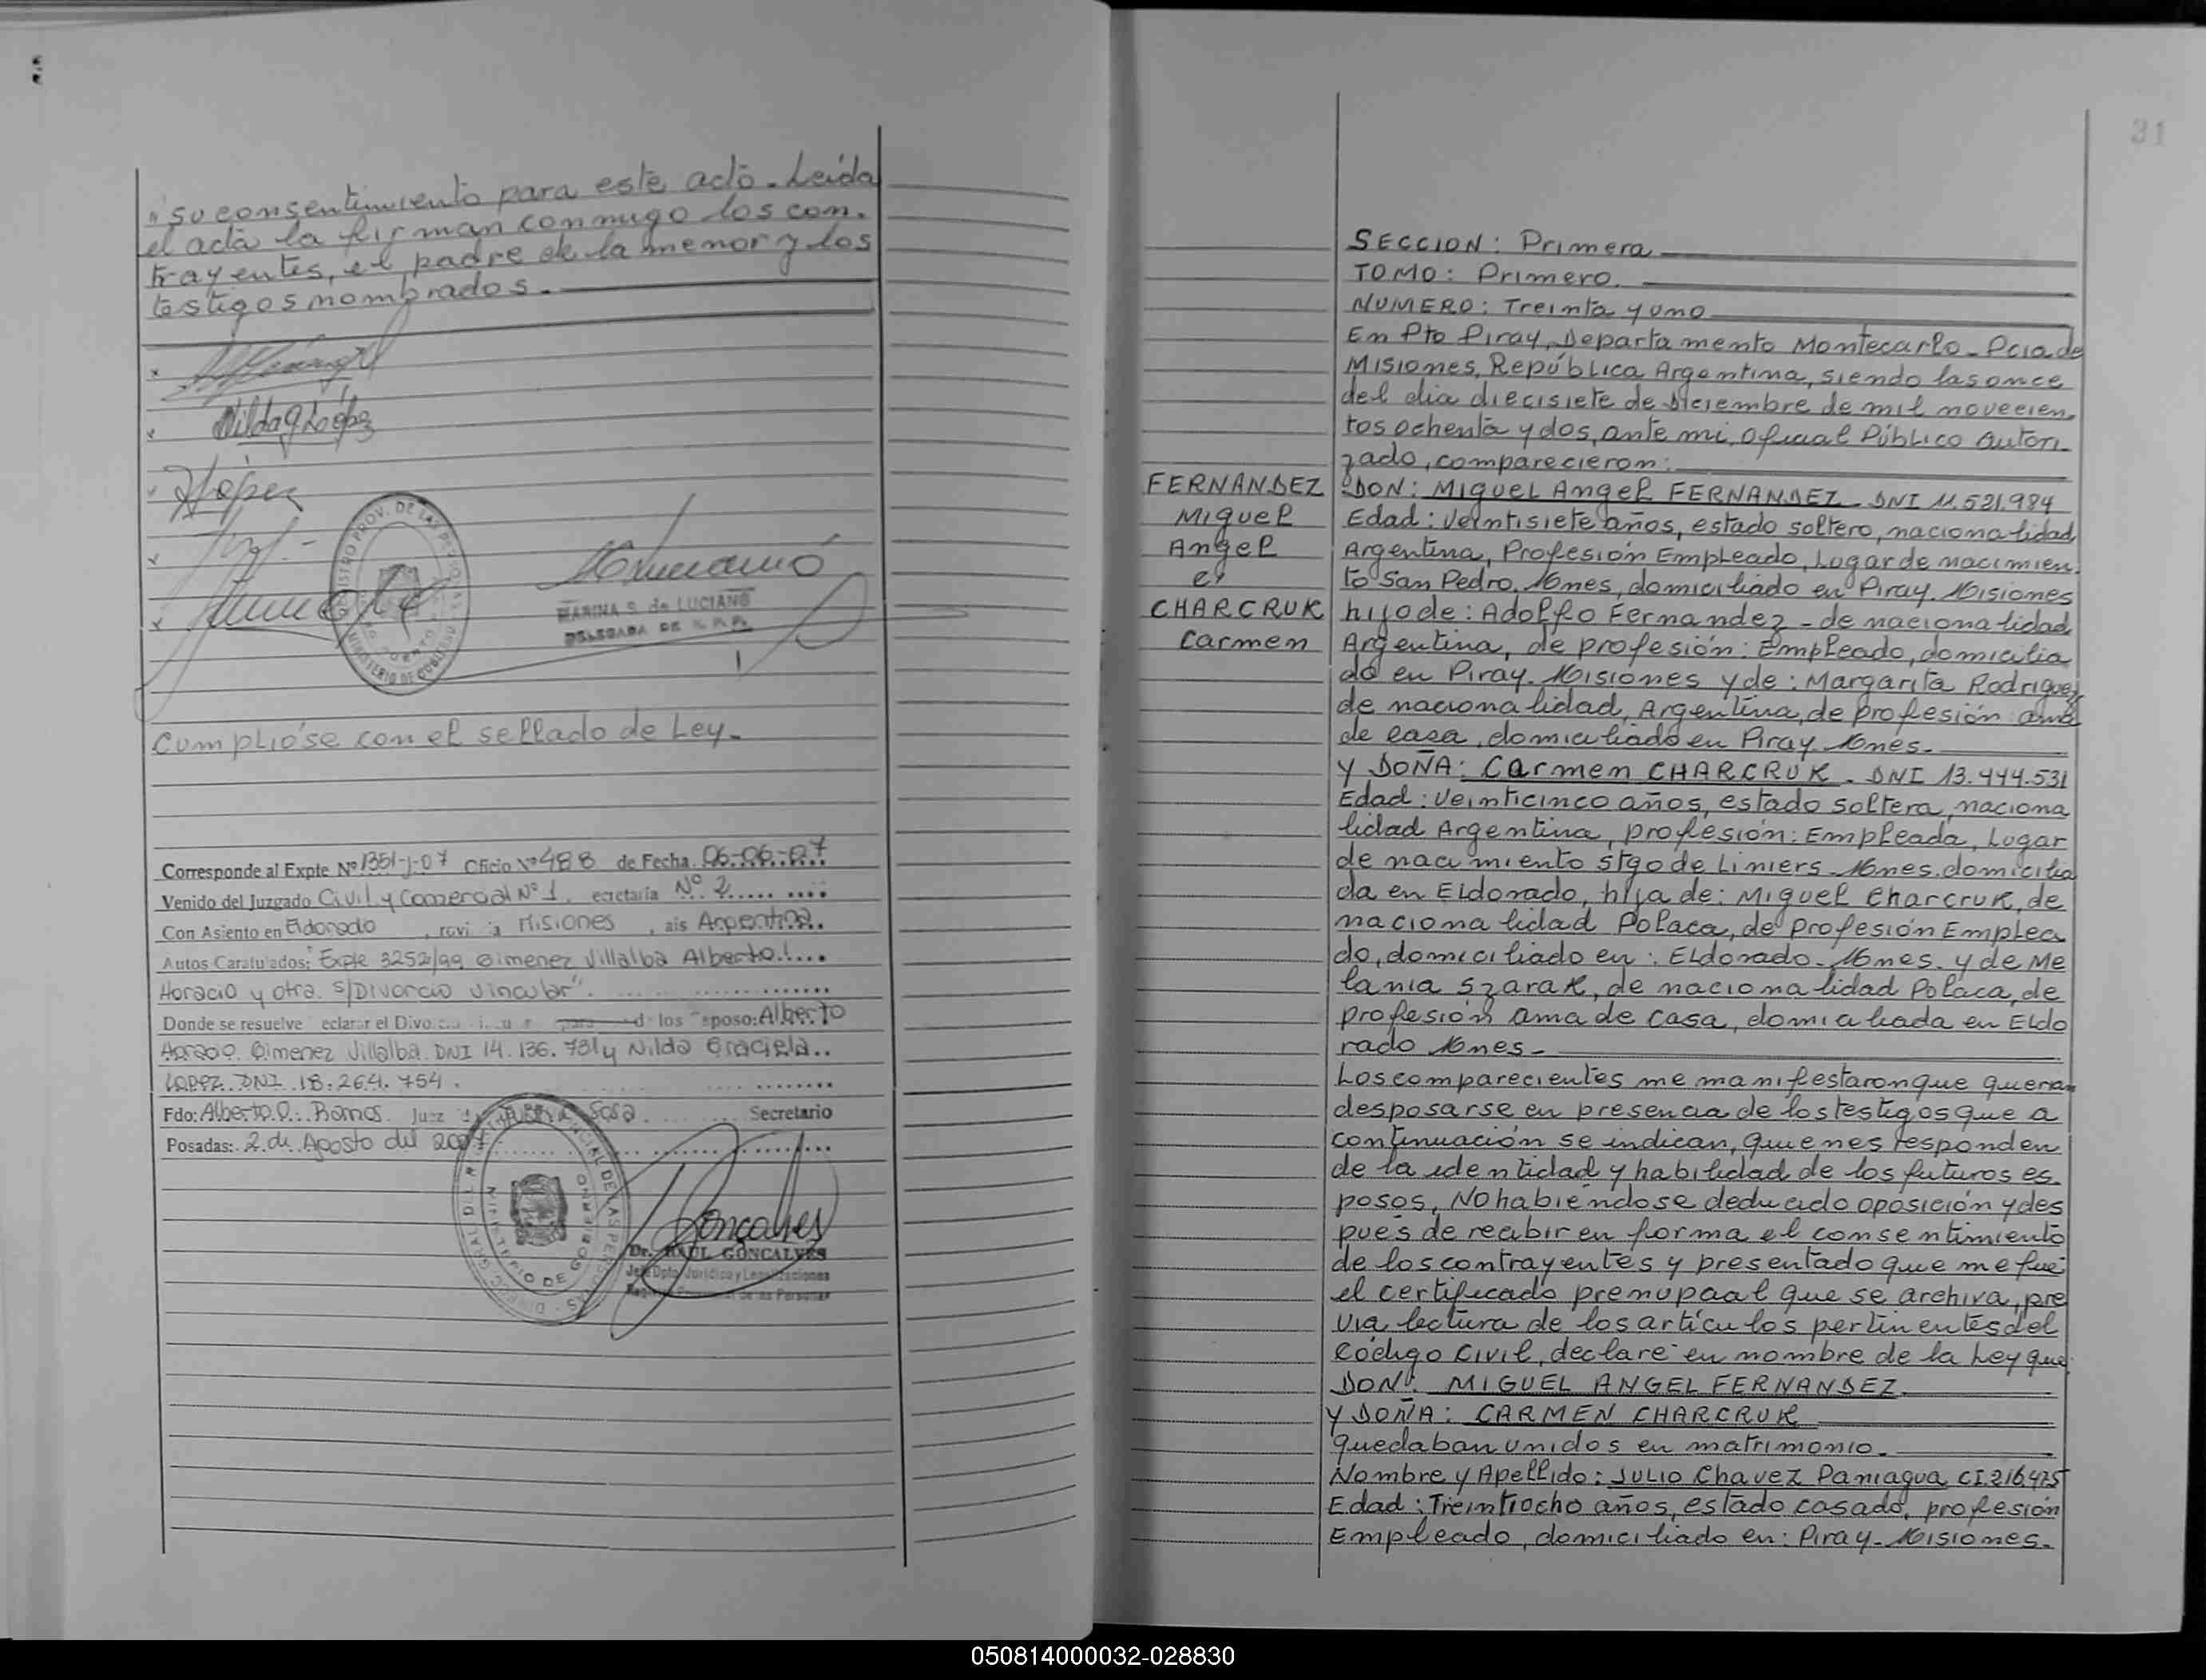 su consentimiento para este acto. Leída
el acta la firman conmigo los con.
trayentes, el padre de la menor y los
testigos nombrados.
Nilda G López
López
REGISTRO PROV. DE LAS PERSONAS
MINISTERIO DE GOBIERNO
MARINA S. de LUCIANO
DELEGADA DE R.P.P.
Cumplióse con el sellado de Ley.
Corresponde al Expte Nº 1351-J-07 Oficio Nº 488 de Fecha 06-06-07
Venido del Juzgado Civil y Comercial Nº 1. ecretaría Nº 2
Con Asiento en Eldorado, rovi ia Misiones, ais Argentina.
Autos Caratulados: "Expte 3252/99 Gimenez Villalba Alberto
Horacio y otra. s/Divorcio Vincular".
Donde se resuelve eclarar el Divo los sposo: Alberto
Horacio Gimenez Villalba DNI 14.136.731 y Nilda Graciela
LOPEZ DNI 18.264.754.
Fdo: Alberto O. Ramos Juez Sosa Secretario
Posadas: 2 de Agosto del 2007
Goncalves
Dr. RAUL GONCALVES
Jefe Dpto. Jurídico y Legalizaciones
Registro Provincial de las Personas
31
SECCION: Primera
TOMO: Primero.
NUMERO: Treinta y uno
En Pto Piray, Departamento Montecarlo. Pcia de
Misiones, República Argentina, siendo las once
del dia diecisiete de Diciembre de mil novecien.
tos ochenta y dos, ante mi, Oficial Público autori.
zado, comparecieron:
FERNANDEZ
Miguel
Angel
c/
CHARCRUK
Carmen
DON: Miguel Angel FERNANDEZ. DNI 11.521.984
Edad: Veintisiete años, estado soltero, nacionalidad
Argentina, Profesión Empleado, Lugar de nacimien.
to San Pedro. Mnes, domiciliado en Piray. Misiones
hijo de: Adolfo Fernandez - de nacionalidad
Argentina, de profesión: Empleado, domicilia
do en Piray. Misiones y de: Margarita Rodriguez
de nacionalidad, Argentina, de profesión ama
de casa, domiciliado en Piray. Mnes.
Y DOÑA: Carmen CHARCRUK. DNI 13.444.531
Edad: Veinticinco años, estado soltera, naciona
lidad Argentina, profesión: Empleada, Lugar
de nacimiento Stgo de Liniers. Mnes. domicilia
da en Eldorado, hija de: Miguel Charcruk, de
nacionalidad Polaca, de profesión Emplea
do, domiciliado en: Eldorado. Mnes. y de Me
lania Szarak, de nacionalidad Polaca, de
profesión ama de casa, domiciliada en Eldo
rado Mnes.
Los comparecientes me manifestaron que querian
desposarse en presencia de los testigos que a
continuación se indican, quienes responden
de la identidad y habilidad de los futuros es.
posos, No habiendose deducido oposición y des
pués de recibir en forma el consentimiento
de los contrayentes y presentado que me fué
el certificado prenupcial que se archiva, pre
via lectura de los artículos pertinentes del
Código Civil, declaré en nombre de la Ley que
DON: MIGUEL ANGEL FERNANDEZ
Y DOÑA: CARMEN CHARCRUK
quedaban unidos en matrimonio.
Nombre y Apellido: Julio Chavez Paniagua CI.216.475
Edad: Treintiocho años, estado casado, profesión
Empleado, domiciliado en: Piray. Misiones.
050814000032-028830